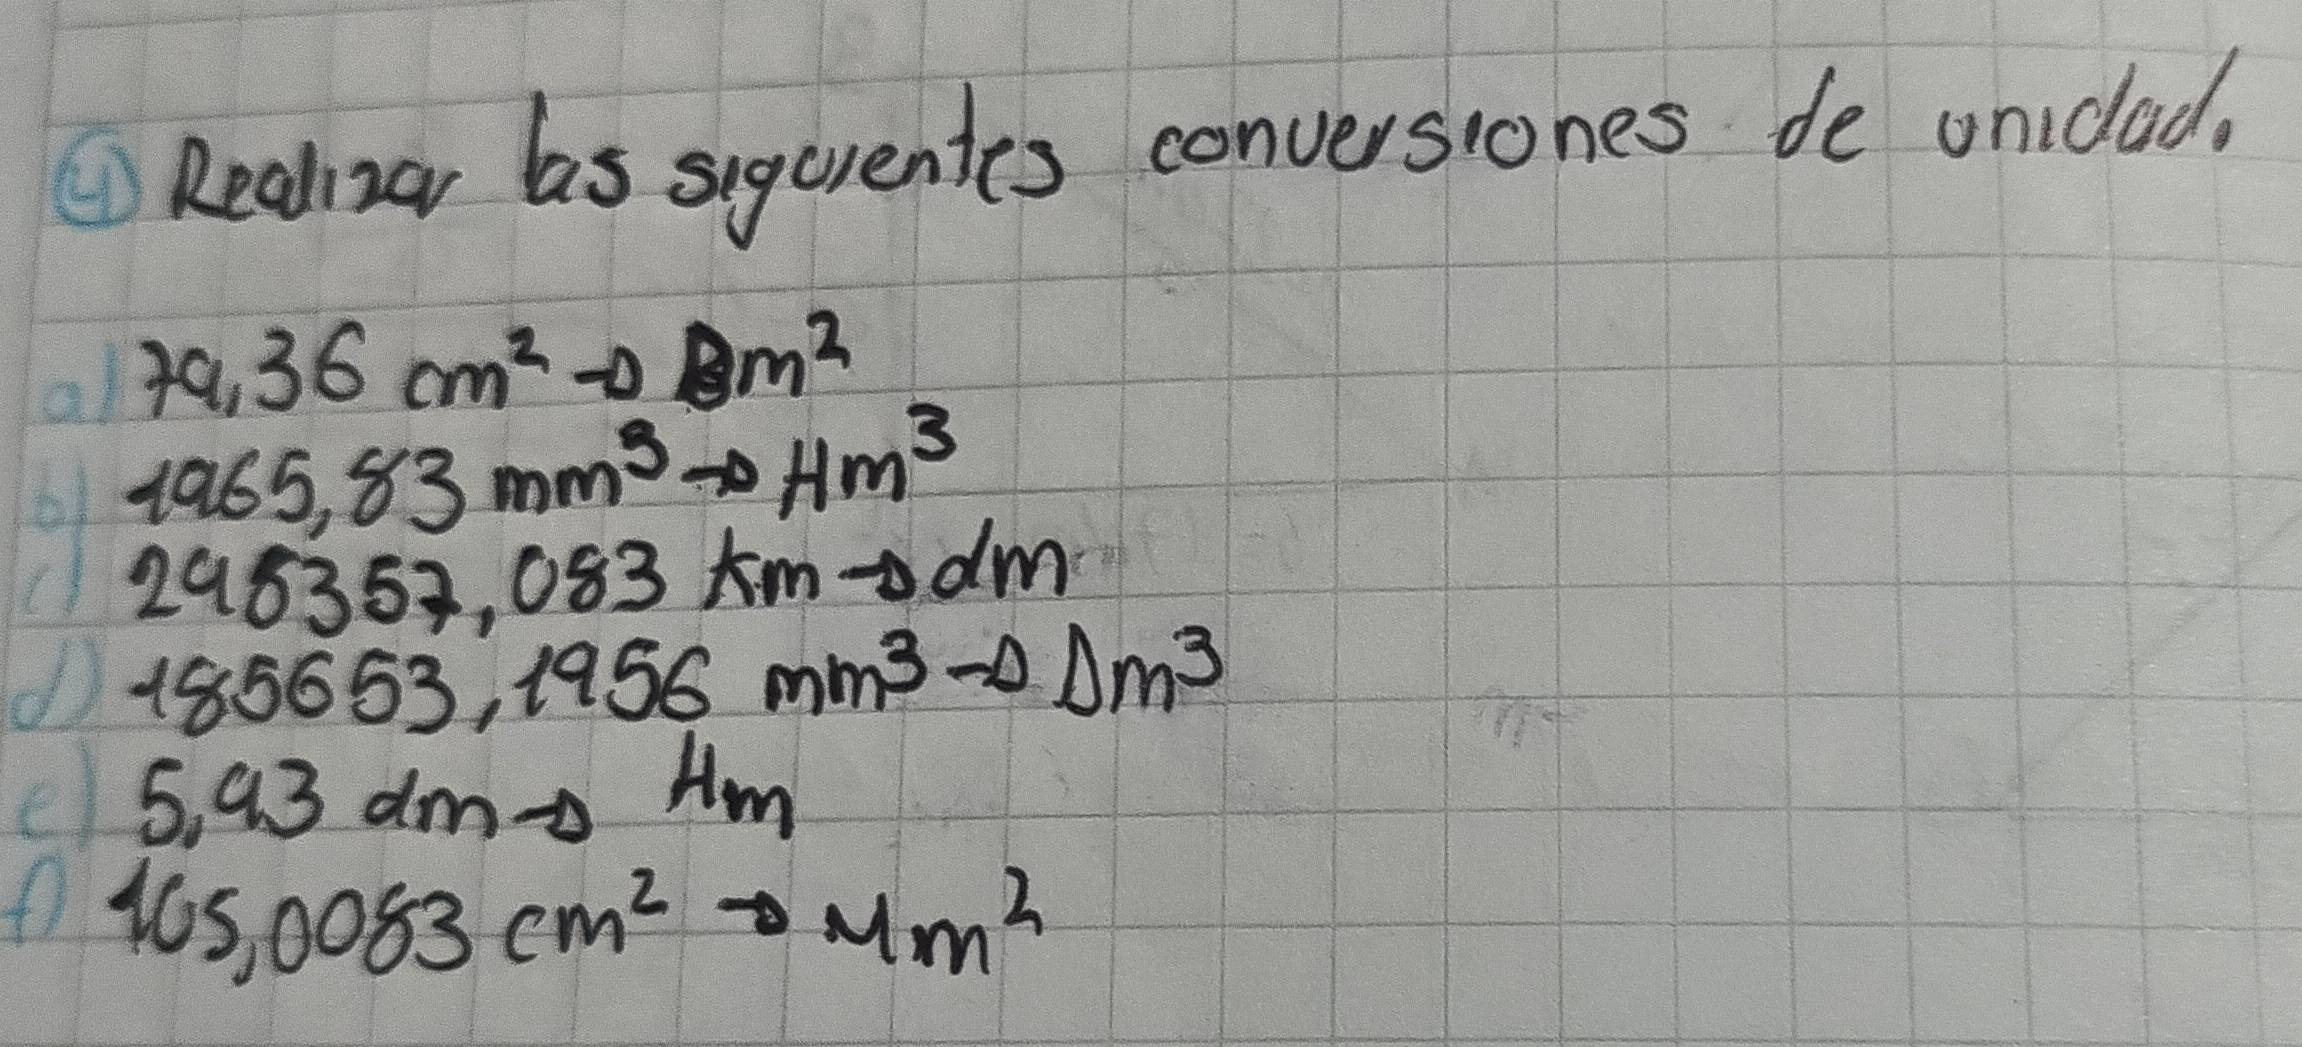 4) Realizar las siguientes conversiones de unidad.
a) 79,36 cm² → Dm²
b) 1965,83 mm³ → Hm³
c) 295357,083 Km → dm
d) 185653,1956 mm³ → Dm³
e) 5,93 dm → Hm
f) 105,0083 cm² → Mm²